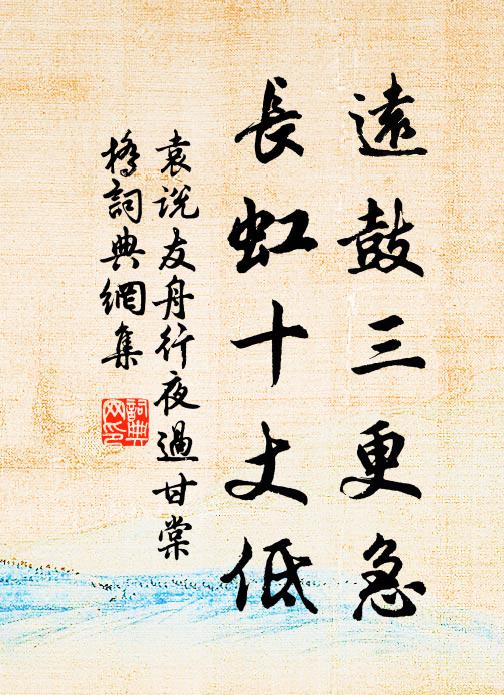 遠鼓三更急
長虹十丈低
袁説友舟行夜過甘棠
橋詞典網集
詞典網印